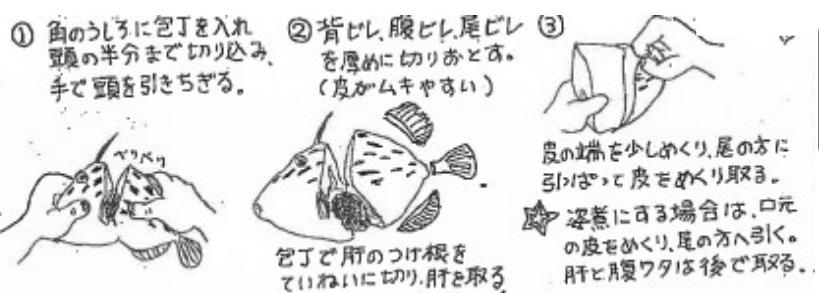 ① 角のうしろに包丁を入れ
頭の半分まで切り込み、
手で頭を引きちぎる。
ベリベリ
② 背ビレ、腹ビレ、尾ビレ
を厚めに切りおとす。
(皮がムキやすい)
包丁で肝のつけ根を
ていねいに切り、肝を取る
③
皮の端を少しめくり、尾の方に
引っぱって皮をめくり取る。
姿煮にする場合は、口元
の皮をめくり、尾の方へ引く。
肝と腹ワタは後で取る。